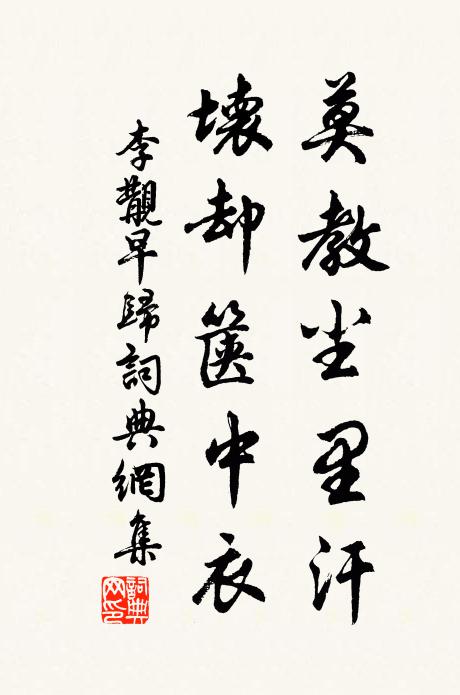 莫教尘里汗
壞却篋中衣
李覯早歸詞典網集
詞典网印